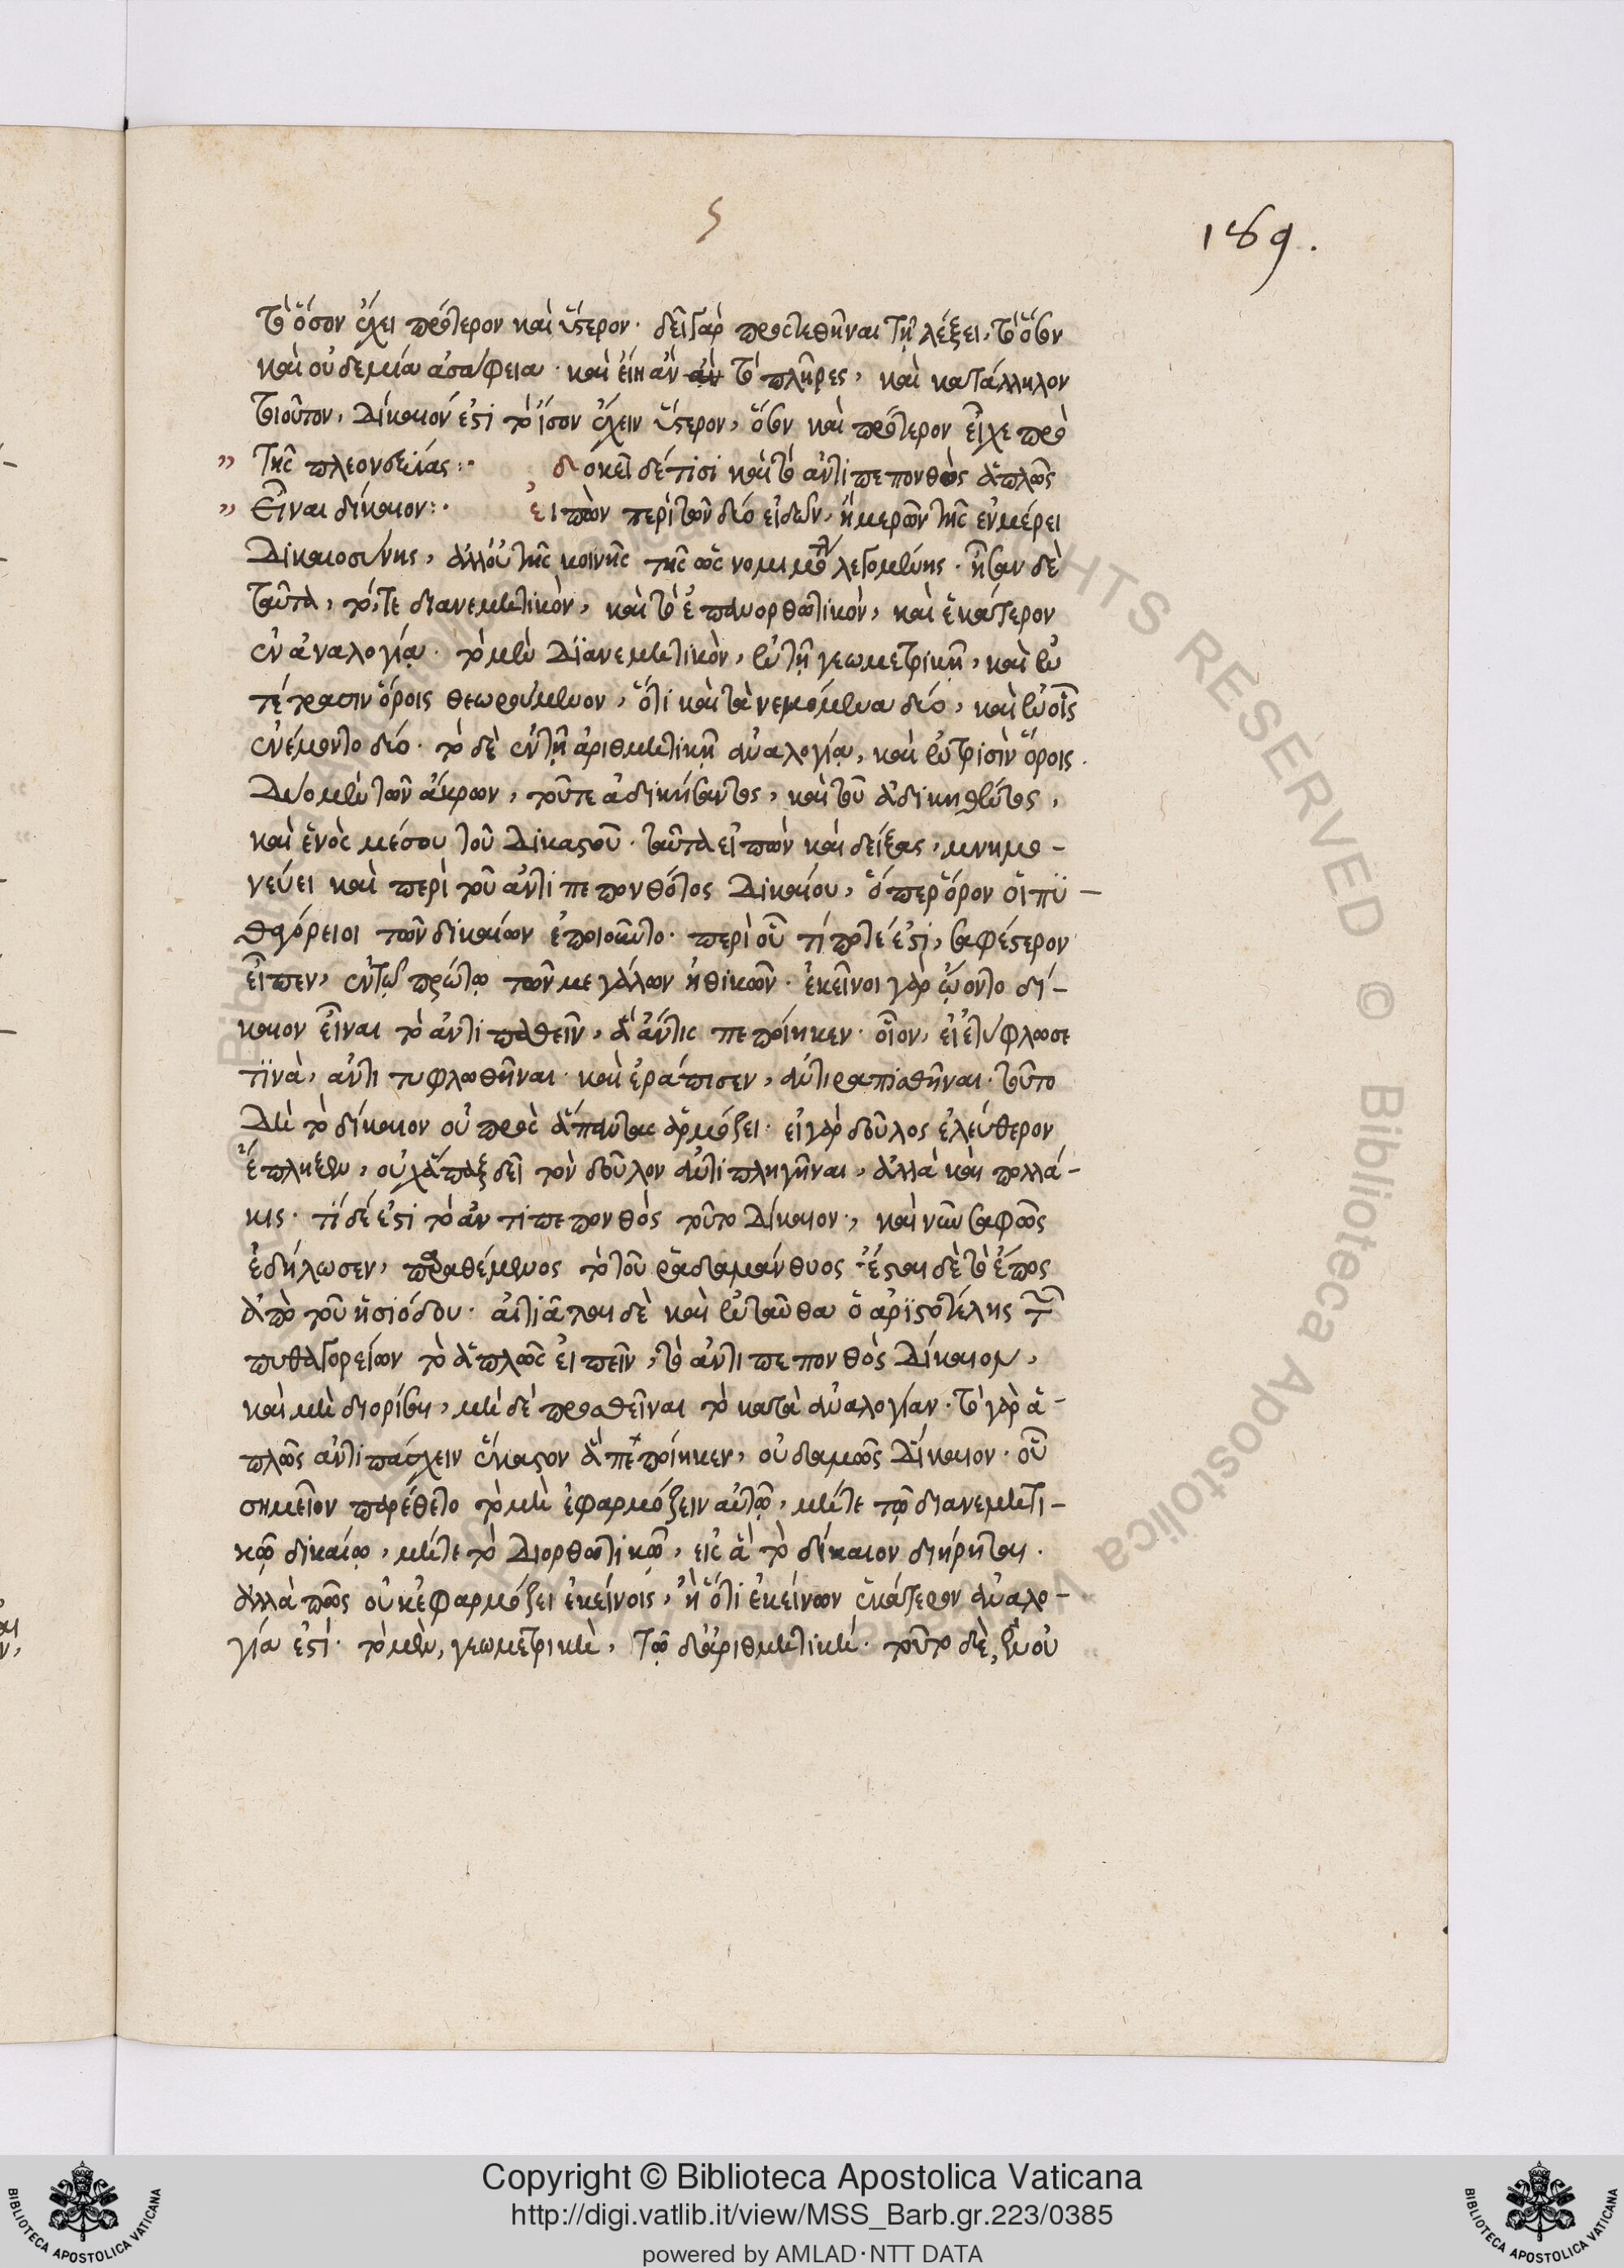 5
189.
τὸ ὅσον ἔχει πρότερον καὶ ὕστερον· δεῖ γὰρ προστεθῆναι τῇ λέξει, τὸ ὅσον
καὶ οὐδεμία ἀσάφεια· καὶ εἴη ἂν ἂν τὸ πλῆρες, καὶ κατάλληλον
τοιοῦτον, δίκαιόν ἐστι τὸ ἴσον ἔχειν ὕστερον, ὅσον καὶ πρότερον εἶχε πρὸ
" τῆς πλεονεξίας:· δοκεῖ δέ τισι καὶ τὸ ἀντιπεπονθὸς ἁπλῶς
" εἶναι δίκαιον:· εἰπὼν περὶ τῶν δύο εἰδῶν, ἢ μερῶν τῆς ἐν μέρει
δικαιοσύνης, ἀλλ' οὐ τῆς κοινῆς τῆς ὡς νομίμου λεγομένης· ἦσαν δὲ
ταῦτα, τό, τε διανεμητικὸν, καὶ τὸ ἐπανορθωτικὸν, καὶ ἑκάτερον
ἐν ἀναλογίᾳ· τὸ μὲν διανεμητικὸν, ἐν τῇ γεωμετρικῇ, καὶ ἐν
τέτρασιν ὅροις θεωρούμενον, ὅτι καὶ τὰ νεμόμενα δύο, καὶ ἐν οἷς
ἐνέμοντο δύο· τὸ δὲ ἐν τῇ ἀριθμητικῇ ἀναλογίᾳ, καὶ ἐν τρισὶν ὅροις.
δύο μὲν τῶν ἄκρων, τοῦτε ἀδικήσαντος, καὶ τοῦ ἀδικηθέντος,
καὶ ἑνὸς μέσου τοῦ δικαστοῦ· ταῦτα εἰπὼν καὶ δείξας, μνημο-
νεύει καὶ περὶ τοῦ ἀντιπεπονθότος δικαίου, ὅπερ ὅρον οἱ πυ-
θαγόρειοι τῶν δικαίων ἐποιοῦντο· περὶ οὗ τί ποτέ ἐστι, σαφέστερον
εἶπεν, ἐν τῷ πρώτῳ τῶν μεγάλων ἠθικῶν· ἐκεῖνοι γὰρ ᾤοντο δί-
καιον εἶναι τὸ ἀντιπαθεῖν, ἃ ἄν τις πεποίηκεν· οἷον, εἰ ἐτύφλωσε
τινὰ, ἀντιτυφλωθῆναι· καὶ ἐράπισεν, ἀντιραπισθῆναι· τοῦτο
δὴ τὸ δίκαιον οὐ πρὸς ἅπαντας ἁρμόζει· εἰ γὰρ δοῦλος ἐλεύθερον
ἔπληξεν, οὐχ ἅπαξ δεῖ τὸν δοῦλον ἀντιπληγῆναι, ἀλλὰ καὶ πολλά-
κις· τί δέ ἐστι τὸ ἀντιπεπονθὸς τοῦτο δίκαιον·, καὶ νῦν σαφῶς
ἐδήλωσεν, παραθέμενος τὸ τοῦ ῥαδαμάνθυος· ἔσται δὲ τὸ ἔπος
ἀπὸ τοῦ ἡσιόδου· αἰτιᾶται δὲ καὶ ἐνταῦθα ὁ ἀριστοτέλης τῶν
πυθαγορείων τὸ ἁπλῶς εἰπεῖν, τὸ ἀντιπεπονθὸς δίκαιον,
καὶ μὴ διορίσαι, μὴ δὲ προσθεῖναι τὸ κατὰ ἀναλογίαν· τὸ γὰρ ἁ-
πλῶς ἀντιπάσχειν ἕκαστον ἃ πεποίηκεν, οὐδαμῶς δίκαιον· οὗ
σημεῖον παρέθετο τὸ μὴ ἐφαρμόζειν αὐτῷ, μήτε τῷ διανεμητι-
κῷ δικαίῳ, μήτε τὸ διορθωτικῷ, εἰς ἃ τὸ δίκαιον διῄρηται.
ἀλλὰ πῶς οὐκ ἐφαρμόζει ἐκείνοις, ἢ ὅτι ἐκείνων ἑκάτερον ἀναλο-
γία ἐστί· τὸ μὲν, γεωμετρικὴ, τῷ δ' ἀριθμητικὴ· τοῦτο δὲ, ἓν οὐ
Copyright © Biblioteca Apostolica Vaticana
http://digi.vatlib.it/view/MSS_Barb.gr.223/0385
powered by AMLAD·NTT DATA